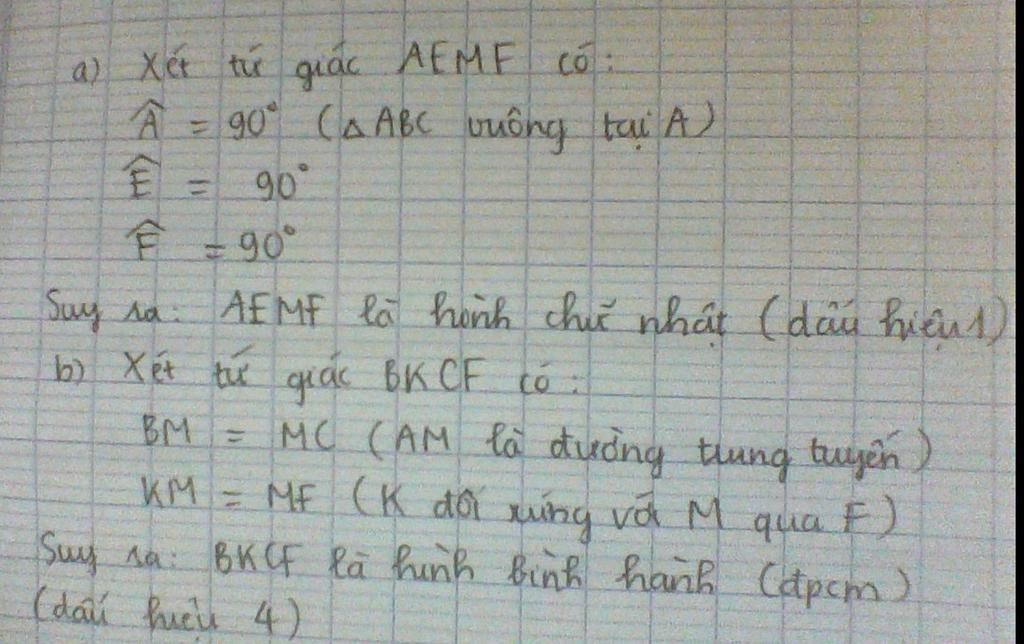 a) Xét tứ giác AEMF có:
Â = 90° (△ ABC vuông tại A)
Ê = 90°
F̂ = 90°
Suy ra: AEMF là hình chữ nhật (dấu hiệu 1)
b) Xét tứ giác BKCF có:
BM = MC (AM là đường trung tuyến)
KM = MF (K đối xứng với M qua F)
Suy ra: BKCF là hình bình hành (đpcm)
(dấu hiệu 4)